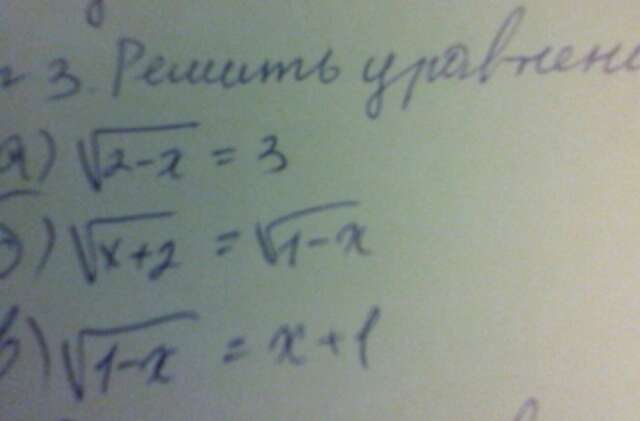 3. Решить уравнени
а) √2-x = 3
б) √x+2 = √1-x
в) √1-x = x+1